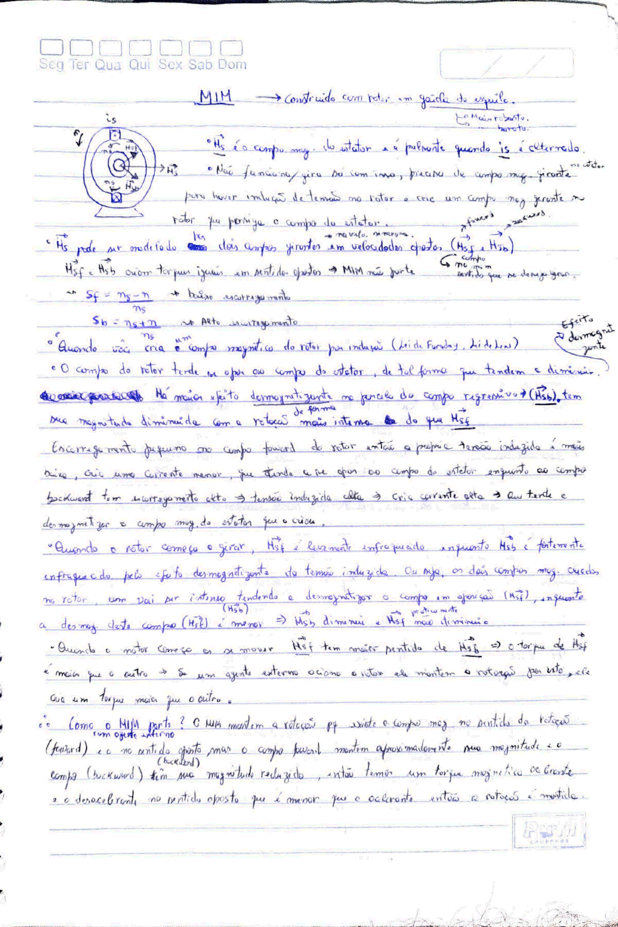 Seg Ter Qua Qui Sex Sab Dom
MIM → construído com rotor em gaiola de esquilo.
↳ Mais robusto, barato.
is
• Hs é o campo mag. do estator e é pulsante quando is é alternado.
• Não funciona/gira só com isso, precisa de campo mag. girante no estator
para haver indução de tensão no rotor e crie um campo mag girante no
rotor que persiga o campo do estator.
• Hs pode ser modelado por dois campos girantes em velocidades opostas (Hsf e Hsb)
↳ campo no sentido que se deseja girar.
Hsf e Hsb criam torques iguais em sentidos opostos → MIM não parte
→ Sf = ns - n / ns → baixo escorregamento
Sb = ns + n / ns → Alto escorregamento
Efeito desmagnetizante
• Quando cria um campo magnético do rotor por indução (Lei de Faraday, Lei de Lenz)
• O campo do rotor tende se opor ao campo do estator, de tal forma que tendem a diminuir.
Há maior efeito desmagnetizante na parcela do campo regressivo → (Hsb), tem
sua magnitude diminuída com a rotação de forma mais intensa do que Hsf
Escorregamento pequeno no campo foward do rotor então a própria tensão induzida é mais
baixa, cria uma corrente menor, que tende a se opor ao campo do estator enquanto ao campo
backward tem escorregamento alto → tensão induzida alta → cria corrente alta → que tende a
desmagnetizar o campo mag. do estator que o criou.
• Quando o rotor começa a girar, Hsf é levemente enfraquecido enquanto Hsb é fortemente
enfraquecido pelo efeito desmagnetizante da tensão induzida. Ou seja, os dois campos mag. criados
no rotor, um vai ser intenso tendendo a desmagnetizar o campo em oposição (Hsb), enquanto
a desmag deste campo (Hsf) é menor ⇒ Hsb diminui e Hsf praticamente não diminui
• Quando o motor começa a se mover Hsf tem maior sentido de Hsf ⇒ o torque de Hsf
é maior que o outro → Se um agente externo aciona o rotor ele mantem a rotação por isto, cria
um torque maior que o outro.
Como o MIM parte? O MIM mantem a rotação com agente externo pq existe o campo mag. no sentido da rotação
(foward) e o no sentido oposto (backward) mas o campo foward mantem aproximadamente sua magnitude e o
campo (backward) têm sua magnitude reduzida, então temos um torque magnético acelerante
e o desacelerante no sentido oposto que é menor que o acelerante então a rotação é mantida.